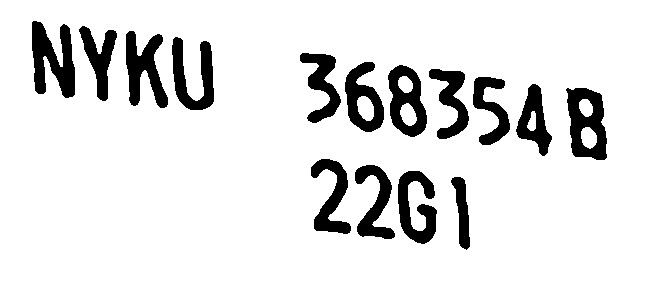 NYKU 368354 8
22G1